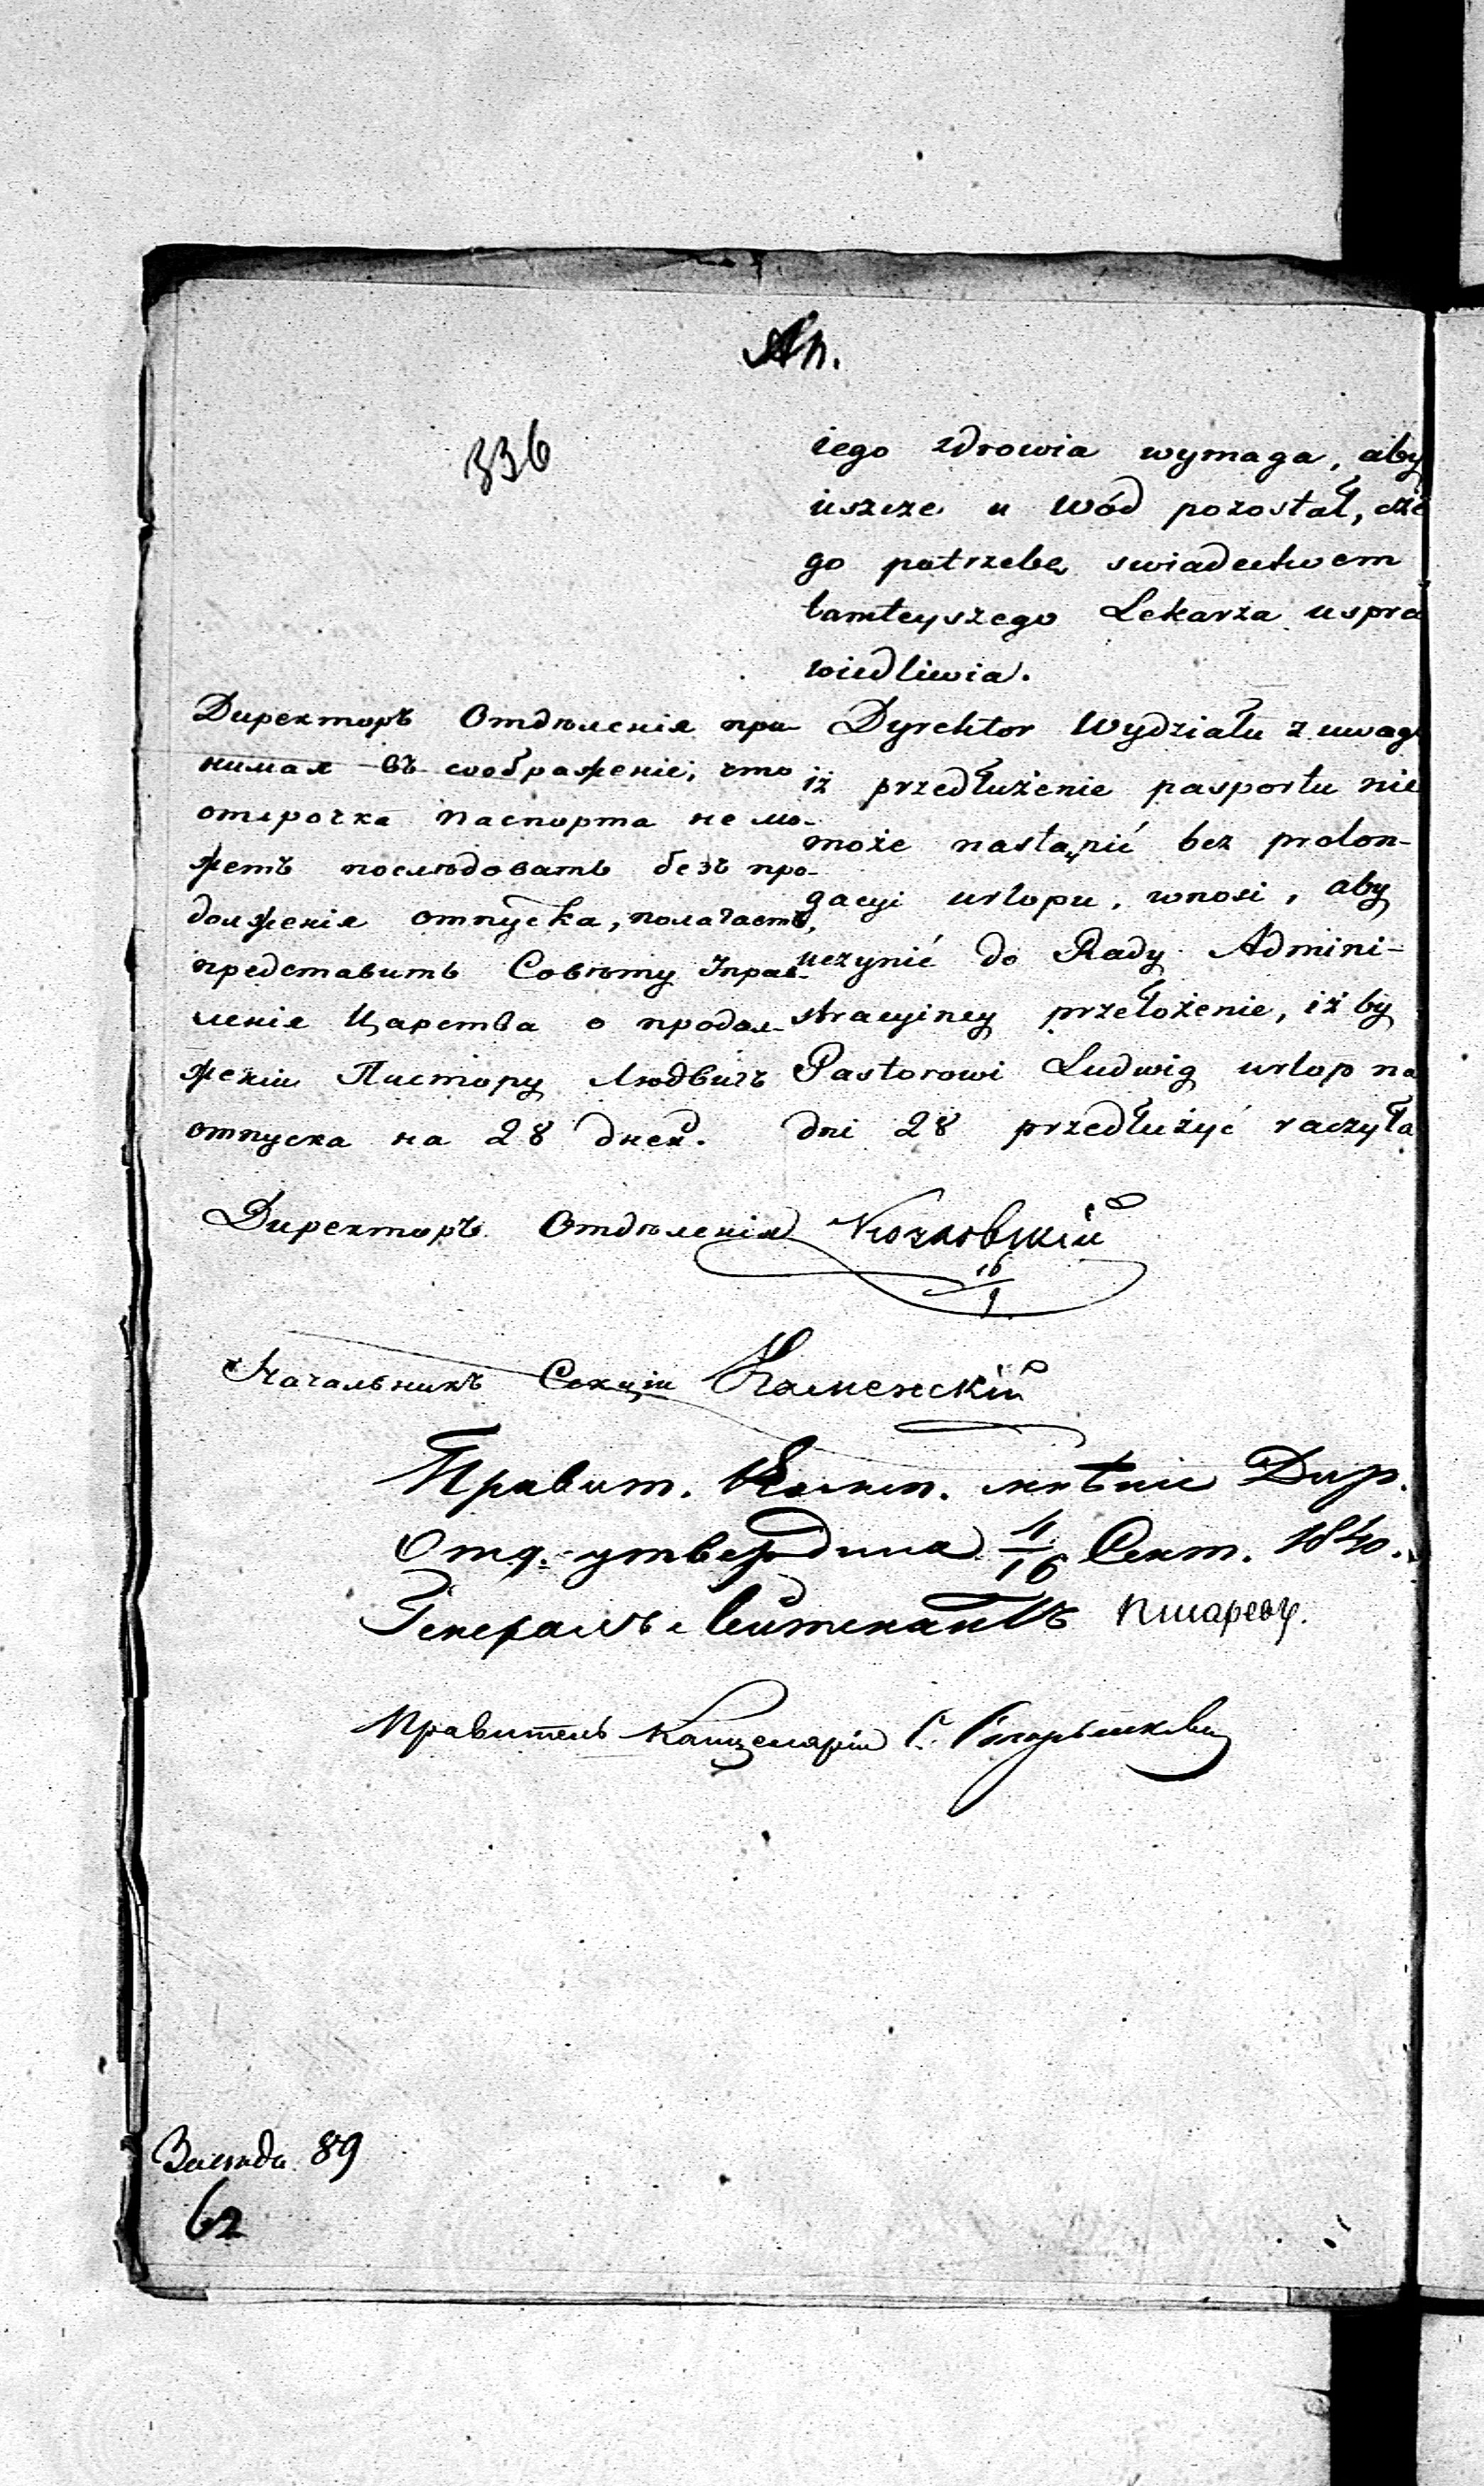 336
iego zdrowia wymaga, aby
ieszcze u Wód pozostał, cze
go potrzebę swiadectwem
tamteyszego Lekarza uspra
wiedliwia.
Директоръ Отдѣленія при-
нимая въ соображеніе, что
отсрочка паспорта не мо-
жетъ послѣдовать безъ про-
долженія отпуска, полагаетъ,
представить Совѣту Управ-
ленія Царства о продол-
женіи Пастору Людвигъ
отпуска на 28 дней.
Dyrektor Wydziału z uwagi
iż przedłużenie pasportu nie
może nastąpić bez prolon-
gacyi urlopu, wnosi, aby
uczynić do Rady Admini-
stracyiney przełożenie, iż by
Pastorowi Ludwig urlop na
dni 28 przedłużyć raczyła
Директоръ Отдѣленія Козловскій
16/9
Начальникъ Секціи Каменскій
Правит. Комм. мнѣніе Дир.
Отд. утвердила 4/16 Сент. 1840.
Генералъ-Лейтенантъ Писаревъ.
Правитель Канцеляріи
89
62